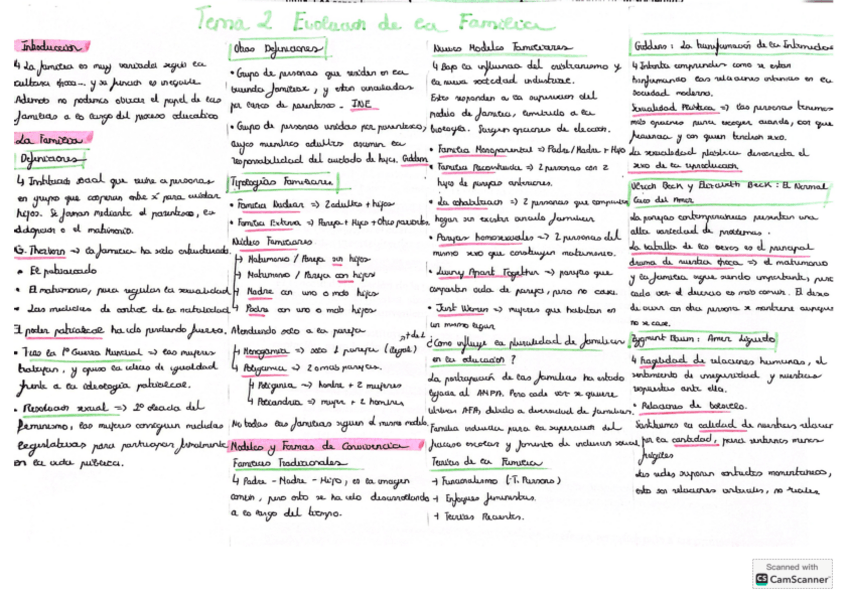 Tema 2 Evolución de la Familia
Introducción
La familia es muy variada según la
cultura, época... y su función es innegable.
Además no podemos obviar el papel de las
familias a lo largo del proceso educativo
La Familia
Definiciones
Institución social que reúne a personas
en grupo que cooperan entre sí para cuidar
hijos. Se forman mediante el parentesco, la
adopción o el matrimonio.
G. Therborn => la familia ha sido estructurada
• El patriarcado
• El matrimonio, para regular la sexualidad
• Las medidas de control de la natalidad
El poder patriarcal ha ido perdiendo fuerza.
• Tras la 1ª Guerra Mundial => las mujeres
trabajan, y apoyo la ideas de igualdad
frente a la ideología patriarcal.
• Revolución sexual => 2ª oleada del
feminismo, las mujeres consiguen medidas
legislativas para participar libremente
en la vida pública.
Otras Definiciones
• Grupo de personas que residen en la
vivienda familiar, y están vinculadas
por lazos de parentesco. INE
• Grupo de personas unidas por parentesco,
cuyos miembros adultos asumen la
responsabilidad del cuidado de hijos. Giddens
Tipologías Familiares
• Familia Nuclear => 2 adultos + hijos
• Familia Extensa => Pareja + Hijos + Otros parientes
Núcleos Familiares
Matrimonio / Pareja sin hijos
Matrimonio / Pareja con hijos
Madre con uno o más hijos
Padre con uno o más hijos
Atendiendo solo a la pareja
Monogamia => solo 1 pareja (legal)
Poligamia => 2 o más parejas.
Poliginia => hombre + 2 mujeres
Poliandria => mujer + 2 hombres
No todas las familias siguen el mismo modelo.
Modelos y Formas de Convivencia
Familias Tradicionales
Padre - Madre - Hijo, es la imagen
común, pero esto se ha ido desarrollando
a lo largo del tiempo.
Nuevos Modelos Familiares
Bajo la influencia del cristianismo y
la nueva sociedad industrial.
Estos responden a la superación del
modelo de familia, limitado a la
biología. Surgen opciones de elección.
• Familia Monoparental => Padre/Madre + Hijo
• Familia Reconstituida => 2 personas con 2
hijos de parejas anteriores.
• La cohabitación => 2 personas que comparten
hogar sin existir vínculo familiar
• Parejas homosexuales => 2 personas del
mismo sexo que constituyen matrimonio.
• Living Apart Together => parejas que
comparten vida de pareja, pero no casa.
• Just Women => mujeres que habitan en
un mismo lugar
¿Cómo influye la pluralidad de familias
en la educación?
La participación de las familias ha estado
ligada al AMPA. Pero cada vez se quiere
utilizar AFA, debido a diversidad de familias.
Familia influye para la superación del
fracaso escolar y fomento de inclusión social
Teorías de la Familia
→ Funcionalismo (T. Parsons)
→ Enfoques feministas.
→ Teorías Recientes.
Giddens: La transformación de la Intimidad
Intenta comprender como se están
transformando las relaciones íntimas en la
sociedad moderna.
Sexualidad Plástica => las personas tenemos
más opciones para escoger cuando, con que
frecuencia y con quien tendrán sexo.
La sexualidad plástica desconecta el
sexo de la reproducción
Ulrich Beck y Elizabeth Beck: El Normal
Caos del Amor
La parejas contemporáneas presentan una
alta variedad de problemas.
La batalla de los sexos es el principal
drama de nuestra época => el matrimonio
y la familia sigue siendo importante, pero
cada vez el divorcio es más común. El deseo
de vivir con otra persona se mantiene aunque
no se case.
Zygmunt Bauman: Amor Líquido
Fragilidad de relaciones humanas, el
sentimiento de inseguridad y nuestras
respuestas ante ella.
• Relaciones de bolsillo.
Sustituimos la calidad de nuestras relaciones
por la cantidad, para sentirnos menos
frágiles
Las redes suponen contactos momentáneos,
esto son relaciones virtuales, no reales.
Scanned with
CS CamScanner